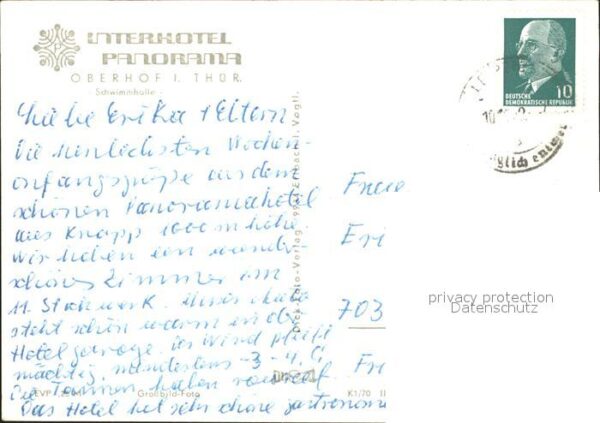 INTERHOTEL
PANORAMA
OBERHOF I. THÜR.
- Schwimmhalle -
DEUTSCHE
DEMOKRATISCHE REPUBLIK
10
Liebe Erika + Eltern
Die herzlichsten Wochen-
anfangsgrüße aus dem
schönen Panoramahotel
aus knapp 1000 m Höhe
wir haben ein wunder-
schönes Zimmer im
11. Stockwerk.
steht schön warm in der
Hotelgarage. Der Wind pfeift
mächtig, mindestens -3 -4 C,
Die Tannen haben
Das Hotel hat sehr schöne gastronom
Frau
Eri
703
Fri
Bild und Heimat
privacy protection
Datenschutz
EVP
Großbild-Foto
K1/70